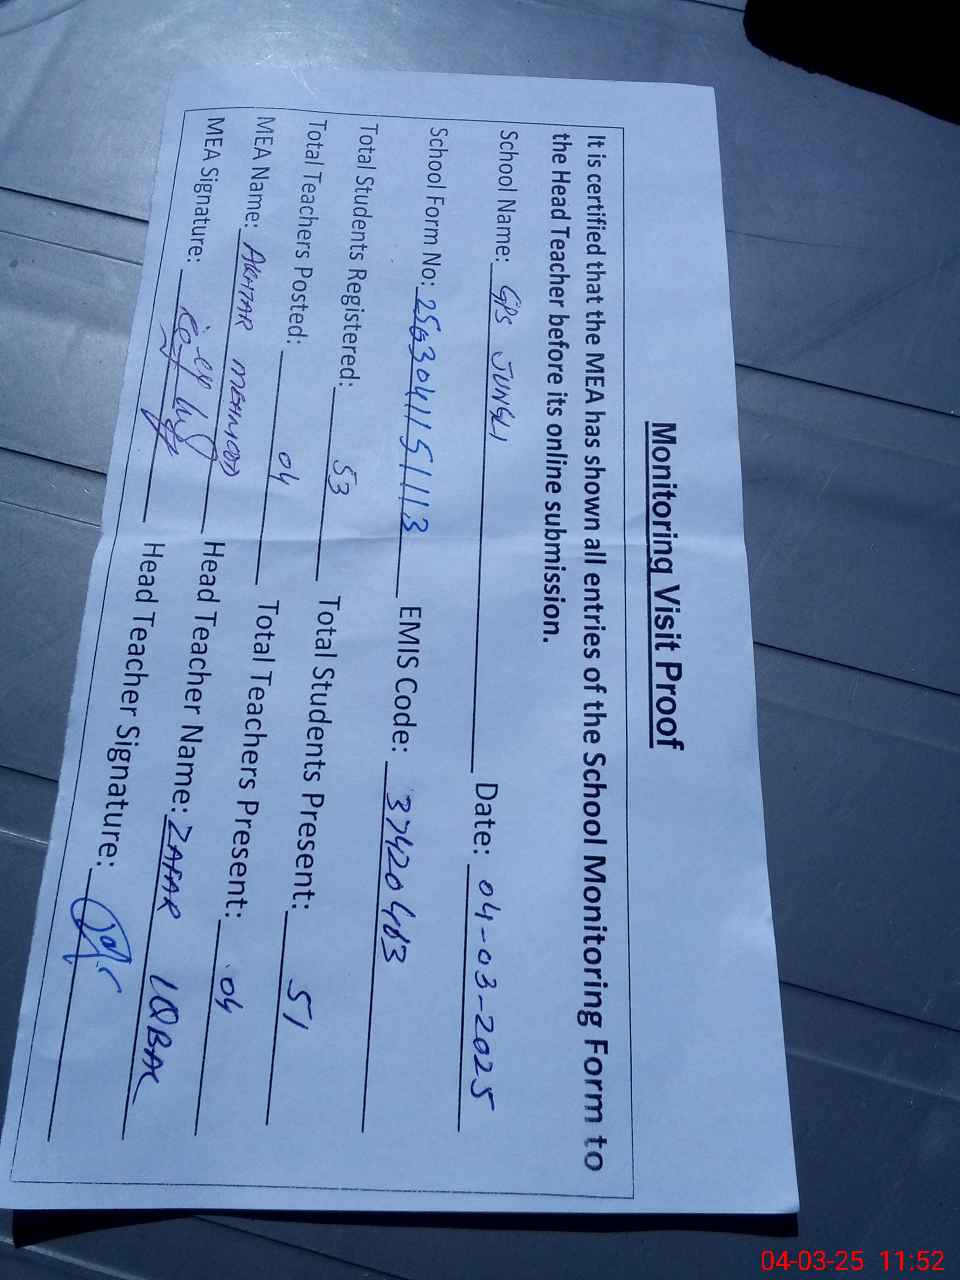 Monitoring Visit Proof
It is certified that the MEA has shown all entries of the School Monitoring Form to
the Head Teacher before its online submission.
School Name: GPS JUNGLI Date: 04-03-2025
School Form No: 25G3041151113 EMIS Code: 37420483
Total Students Registered: 53 Total Students Present: 51
Total Teachers Posted: 04 Total Teachers Present: 04
MEA Name: AKHTAR MEHMOOD Head Teacher Name: ZAFAR IQBAL
MEA Signature: Head Teacher Signature:
04-03-25 11:52